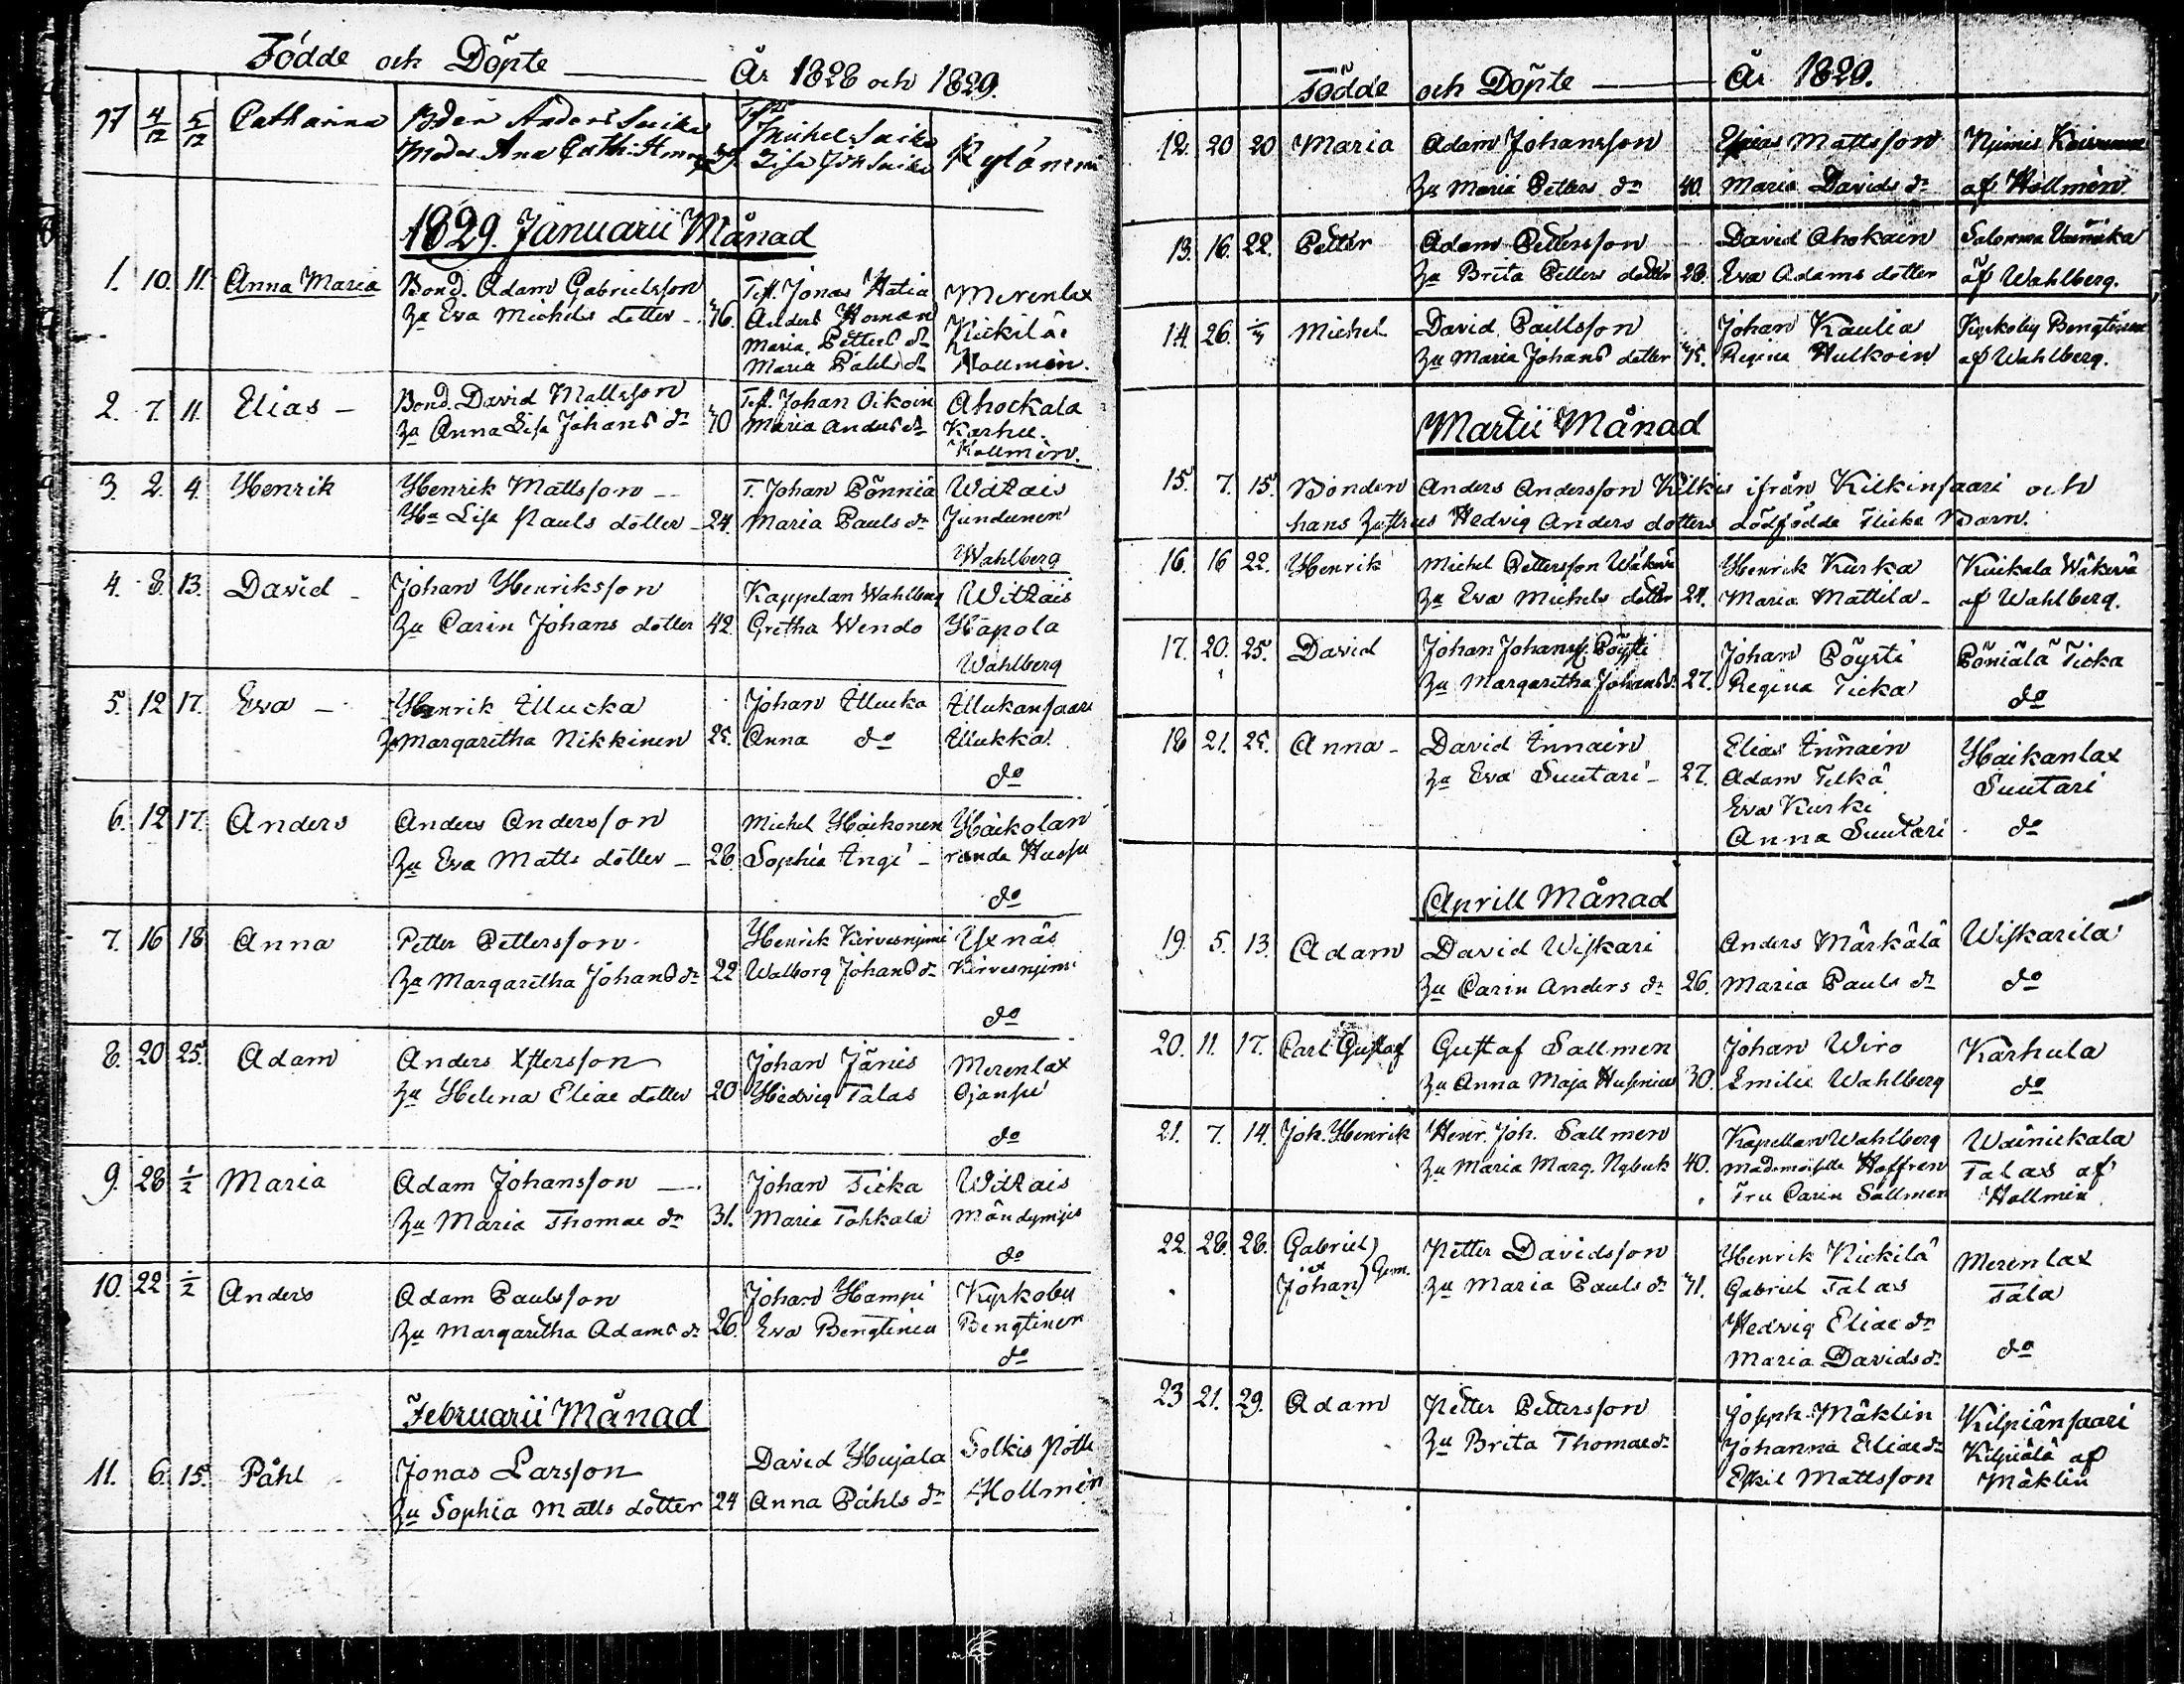 Födde och Döpte — År 1828 och 1829.
97 4/12 5/12 Catharina Bden Anders Suika Michel Suika
Moder Ana Cath: Lisa Joh Suika Kylänemi
1829. Januarii Månad
1. 10. 11. Anna Maria Bond. Adam Gabrielsson Test. Jonas Hatia Merenlax
Eva Michels dotter - 36. Anders Homan Nickilä
Maria Petters dr
Maria Påhls dr Hollmén.
2. 7. 11. Elias - Bond. David Mattsson Test. Johan Oikoin Ahockala
Anna Lisa Johans dr 30 Maria Anders dr Karhu.
Hollmén.
3. 2. 4. Henrik Henrik Mattsson - T. Johan Pönniä Witkais
Hu Lisa Pauls dotter - 24. Maria Pauls dr Jundunen
Wahlberg
4. 8. 13. David - Johan Henriksson Kappelan Wahlberg Witkais
Hu Carin Johans dotter 42. Gretha Wendo Hapola
Wahlberg
5. 12 17. Eva - Henrik Illucka Johan Illucka Illukansaari
Hu Margaretha Nikkinen 25. Anna do Illukka.
do
6. 12 17. Anders Anders Andersson Michel Haikonen Haikolan
Hu Eva Matts dotter - 28. Sophia Ingi - randa Hussu
do
7. 16 18 Anna Petter Pettersson. Henrik Kirvesnjemi Yxnäs
Hu Margaretha Johans dr 22 Walborg Johans dr Kirvesnjemi
do
8. 20 25. Adam Anders Xstersson Johan Jänis Merenlax
Hu Helena Eliae dotter 20 Hedvig Talas Ojansu
do
9. 28 1/2 Maria Adam Johansson - Johan Ticka Witkais
Hu Maria Thomae dr 31. Maria Tohkala
do
10. 22 1/2 Anders Adam Paulsson Johan Hampu Kyrkoby
Hu Margaretha Adams dr 26. Eva Bengtinen Bengtinen
do
Februarii Månad
11. 6. 15. Påhl Jonas Larsson David Hujala Solkis
Hu Sophia Matts dotter 24 Anna Påhls dr Hollmén
Födde och Döpte — År 1829.
12. 20 20 Maria Adam Johansson Esaias Mattsson Njemis
Hu Maria Petters dr 40. Maria Davids dr af Hollmén.
13. 16. 22. Petter Adam Pettersson David Ahokain
Hu Brita Petters dotter 28. Eva Adams dotter af Wahlberg.
14. 26. Michel David Paullsson Johan Kaulia Kyrkoby Bengtinen
Hu Maria Johans dotter 35. Regina Hulkoin af Wahlberg.
Martii Månad
15. 7. 15. Bonden Anders Andersson Kilkis ifrån Kilkinsaari och
hans hustrus Hedvig Anders dotters dödfödde Flicke Barn.
16. 16 22. Henrik Michel Pettersson Wäkevä Henrik Kurka Kuikala Wäkevä
Hu Eva Michels dotter 24. Maria Mattila - af Wahlberg.
17. 20. 25. David Johan Johanss. Pöysti Johan Pöysti Pöniälä Ticka
Hu Margaretha Johans dr. 27. Regina Ticka do
18 21. 25. Anna - David Innain Elias Innain Haikanlax
Hu Eva Suutari - 27. Adam Tilkä Suutari
Eva Kurki
Anna Suutari do
Aprill Månad
19. 5. 13. Adam David Wiskari Anders Märkälä Wiskarila
Hu Carin Anders dr 26. Maria Pauls dr do
20. 11. 17. Carl Gustaf Gustaf Sallmen Johan Wiro Karhula
Hu Anna Maja 30. Emilie Wahlberg do
21. 7. 14. Joh. Henrik Henr. Joh. Sallmen Kapellan Wahlberg Wäinickala
Hu Maria Marg. 40. Mademoiselle Hoffren Talas af
Fru Carin Sallmen Hollmén.
22. 28. 28. Gabriel Petter Davidsson Henrik Nickilä Merenlax
et Johan Gem. Hu Maria Pauls dr 31. Gabriel Talas Tala
Hedvig Eliae dr
Maria Davids dr do
23 21. 29. Adam Petter Pettersson Joseph Mäklin Kilpiänsaari
Hu Brita Thomae dr Johanna Eliae dr Kilpiälä af
Eskil Mattsson Mäklin